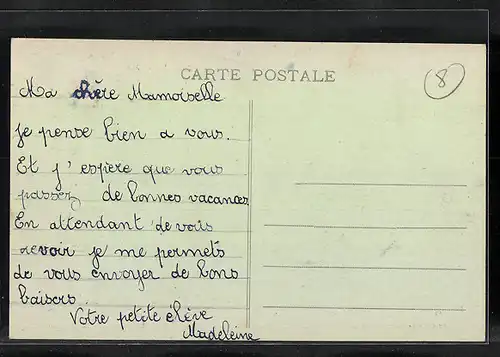 CARTE POSTALE
8
Ma chère Mamoiselle
je pense bien a vous.
Et j'espère que vous
passez de bonnes vacances
En attendant de vous
revoir je me permets
de vous envoyer de bons
baisers.
Votre petite élève
Madeleine